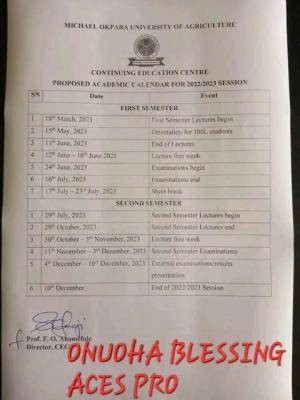 MICHAEL OKPARA UNIVERSITY OF AGRICULTURE
CONTINUING EDUCATION CENTRE
PROPOSED ACADEMIC CALENDAR FOR 2022/2023 SESSION
SN Date Event
FIRST SEMESTER
1 18th March, 2023 First Semester Lectures begin
2 15th May, 2023 Orientation for 100L students
3 11th June, 2023 End of Lectures
4 12th June – 18th June 2023 Lecture free week
5 24th June, 2023 Examinations begin
6 16th July, 2023 Examinations end
7 17th July – 23rd July, 2023 Short break
SECOND SEMESTER
1 29th July, 2023 Second Semester Lectures begin
2 29th October, 2023 Second Semester Lectures end
3 30th October – 5th November, 2023 Lecture free week
4 11th November – 3rd December, 2023 Second Semester Examinations
5 4th December – 10th December, 2023 External examinations/results
presentation
6 10th December End of 2022/2023 Session
Prof. F. O. Ahamefule
Director, CEC
ONUOHA BLESSING
ACES PRO